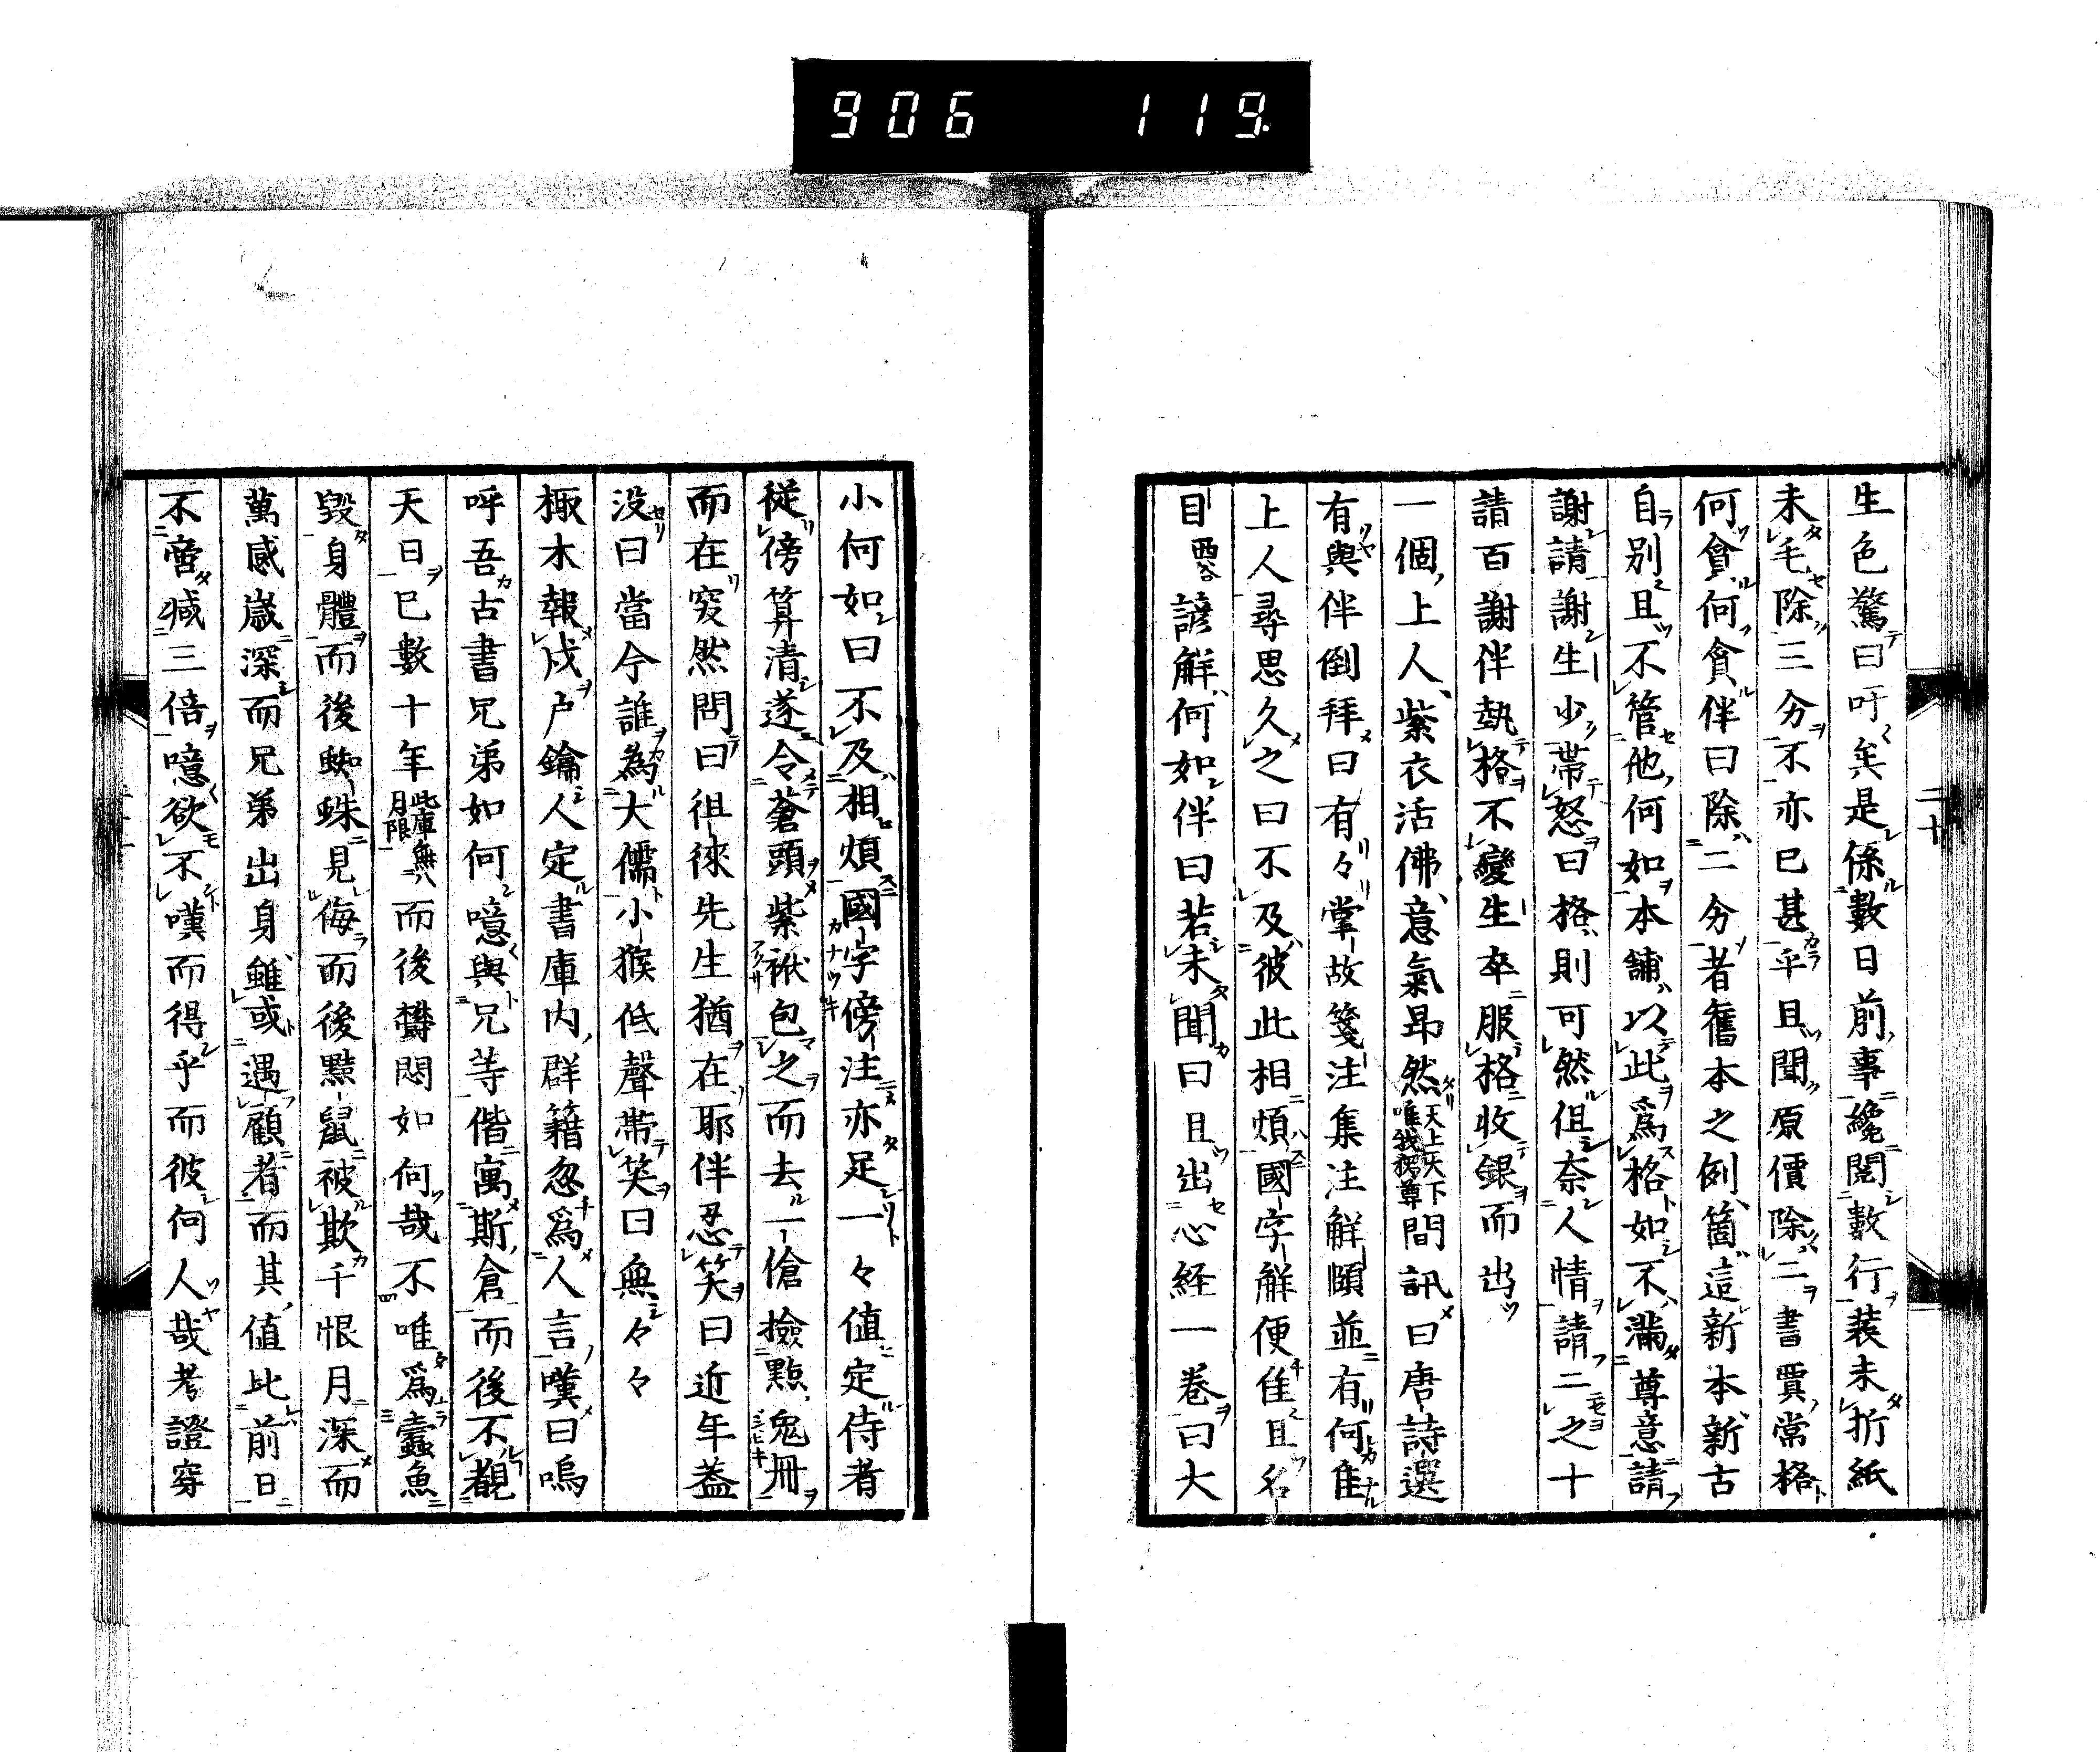 906 119
二十
生色驚曰吁矣是係數日前事纔閱數行装未折紙
未毛除三分不亦已甚乎且聞原價除二書賈常格
何貪何貪伴曰除二分者舊本之例箇這新本新古
自別且不管他何如本舗以此爲格如不滿尊意請
謝請謝生少帯怒曰格則可然但奈人情請二之十
請百謝伴執格不變生卒服格收銀而出
一個上人紫衣活佛意氣昂然天上天下唯我獨尊間訊曰唐詩選
有與伴倒拜曰有々掌故箋注集注解頤並有何隹
上人尋思久之曰不及彼此相煩國字解便隹且名
目諺解何如伴曰若未聞曰且出心経一巻曰大
小何如曰不及相煩國字傍注亦足一々値定侍者
従傍算清遂令蒼頭紫袱包之而去一傖撿點兔册
而在突然問曰徂徠先生猶在耶伴忍笑曰近年蓋
没曰當今誰為大儒小猴低聲帯笑曰無々々
柝木報戍户鑰人定書庫内群籍忽爲人言嘆曰嗚
呼吾古書兄弟如何噫與兄等偕寓斯倉而後不覩
天日已數十年此庫無月限而後欝悶如何哉不唯爲蠹魚
毀身體而後蜘蛛見侮而後黠鼠被欺千恨月深而
萬感歳深而兄弟出身雖或遇顧者而其値比前日
不啻減三倍噫欲不嘆而得乎而彼何人哉考證穿